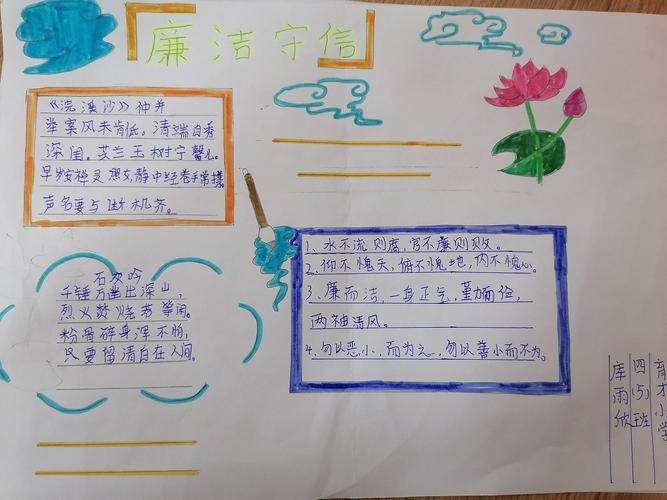 廉洁守信
《浣溪沙》仲并
举案风未肯低。清端自秀
深闺。芸兰玉树宁馨儿。
早岁安禅灵照女,静中经卷手常携。
声名要与断机齐。
石灰吟
千锤万凿出深山,
烈火焚烧若等闲。
粉骨碎身浑不怕,
只要留清白在人间。
1、水不流则腐,官不廉则败。
2、仰不愧天,俯不愧地,内不愧心。
3、廉而洁,一身正气,勤而俭,
两袖清风。
4、勿以恶小,而为之,勿以善小而不为。
育才小学
四(5)班
库雨欣